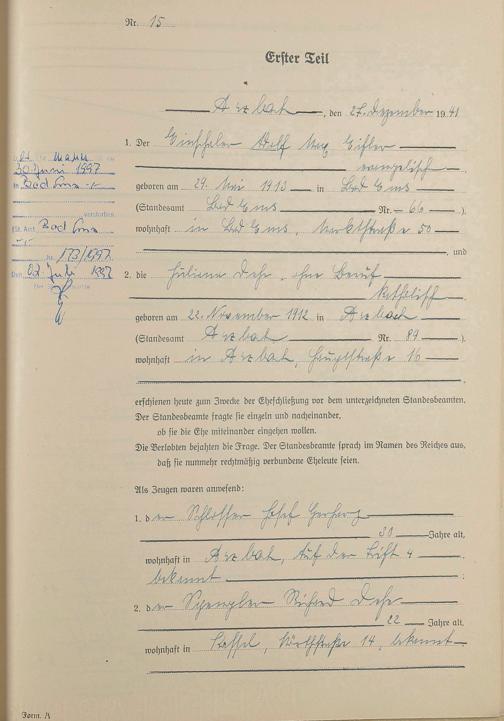 Nr. 15
Erster Teil
Arzbach, den 27. Dezember 1941
1. Der Einschaler Adolf Max Eisler
evangelisch
geboren am 29. Mai 1913 in Bad Ems
(Standesamt Bad Ems Nr. 66 ).
wohnhaft in Bad Ems, Marktstraße 50
, und
2. die Juliana Dahr, ohne Beruf
katholisch
geboren am 22. November 1912 in Arzbach
(Standesamt Arzbach Nr. 89 ).
wohnhaft in Arzbach, Hauptstraße 16
,
erschienen heute zum Zwecke der Eheschließung vor dem unterzeichneten Standesbeamten.
Der Standesbeamte fragte sie einzeln und nacheinander,
ob sie die Ehe miteinander eingehen wollen.
Die Verlobten bejahten die Frage. Der Standesbeamte sprach im Namen des Reiches aus,
daß sie nunmehr rechtmäßig verbundene Eheleute seien.
Als Zeugen waren anwesend:
1. der Schlosser Josef
30 Jahre alt,
wohnhaft in Arzbach, Auf der 4
bekannt ;
2. der Spengler Richard Dahr
22 Jahre alt,
wohnhaft in 14, bekannt
Form. A
Mann
30 Juni 1997
in Bad Ems
verstorben
St. Amt. Bad Ems
Nr. 173/1997
Den 02. Juli 1997